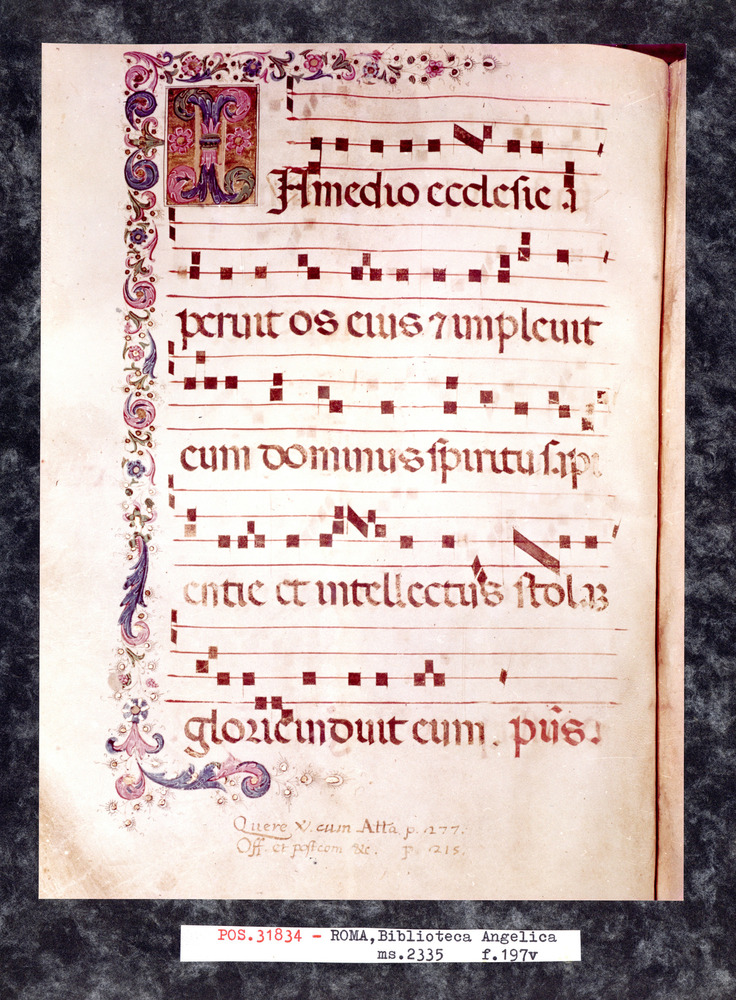 IN medio ecclesie a
peruit os eius ⁊ impleuit
eum dominus spiritu sapi
entie et intellectus stolaꝫ
glorie induit eum. ps̄.
Quere V. cum Alla p. 277.
Off. et postcom &c. p. 215.
POS.31834 - ROMA,Biblioteca Angelica
ms.2335 f.197v